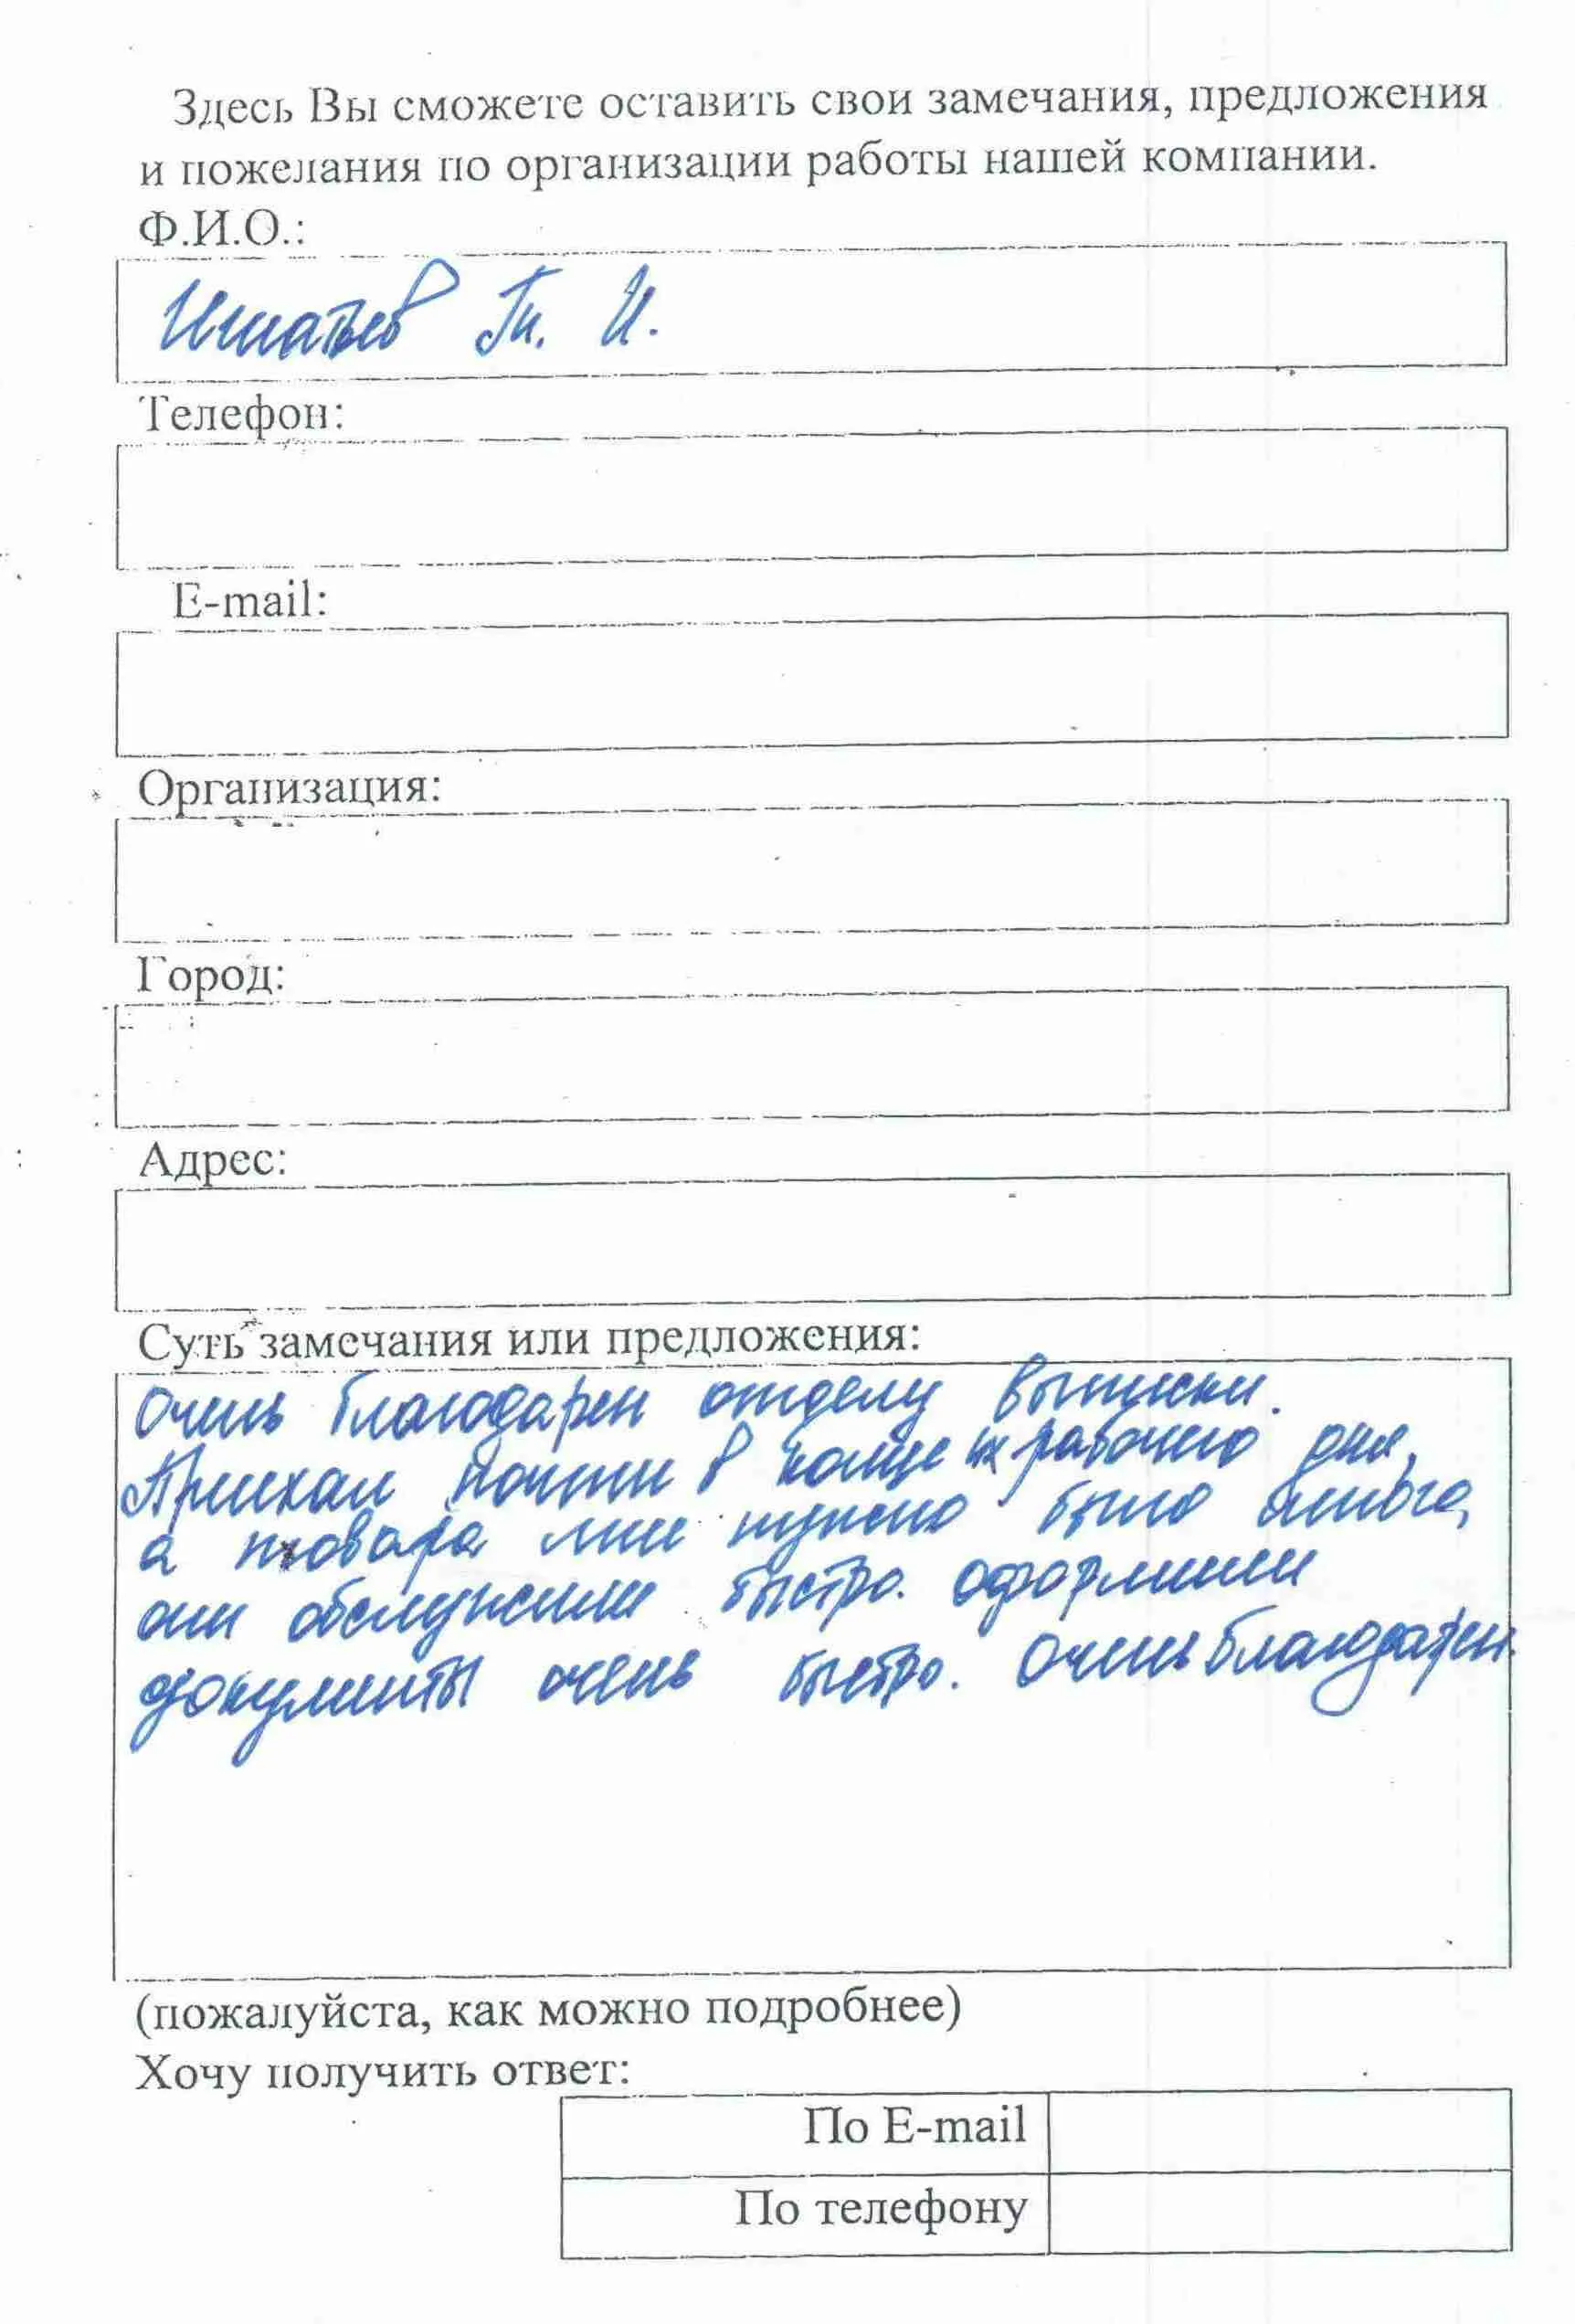 Здесь Вы сможете оставить свои замечания, предложения
и пожелания по организации работы нашей компании.
Ф.И.О.:
И.
Телефон:
E-mail:
Организация:
Город:
Адрес:
Суть замечания или предложения:
Очень благодарен отделу выписки.
Приехал почти в конце их рабочего дня,
а товара мне нужно было много,
они обслужили быстро. оформили
документы очень быстро. Очень благодарен
(пожалуйста, как можно подробнее)
Хочу получить ответ:
По E-mail
По телефону